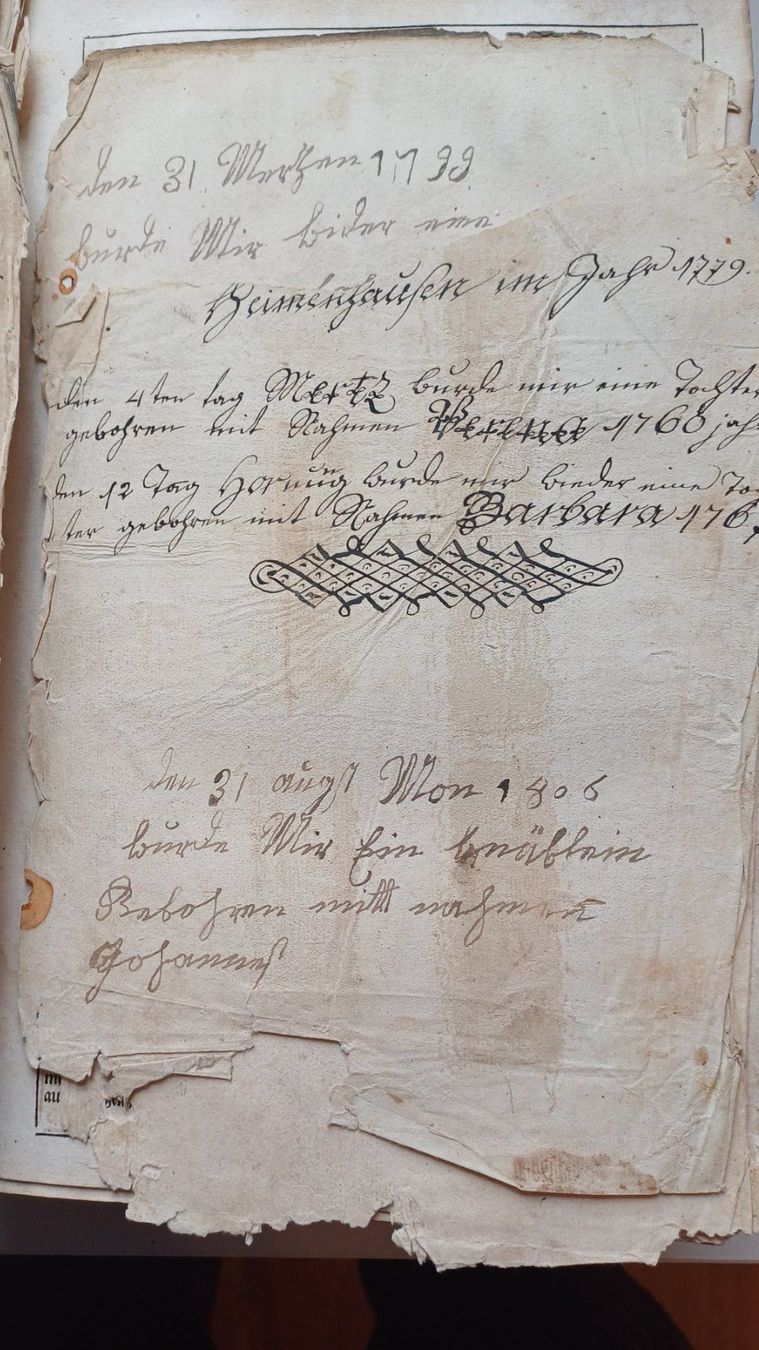 den 31 Mertzen 1799
burde Mir bider eine
Heimenhausen im Jahr 1779.
den 4ten tag Mertz burde mir eine Tochter
gebohren mit Nahmen Verena 1760 jahr
den 12 Tag Hornug burde mir bieder eine To
ter gebohren mit Nahmen Barbara 176
den 31 augst Mon 1806
burde Mir Ein knäblein
Gebohren mitt nahmen
Johannes
au